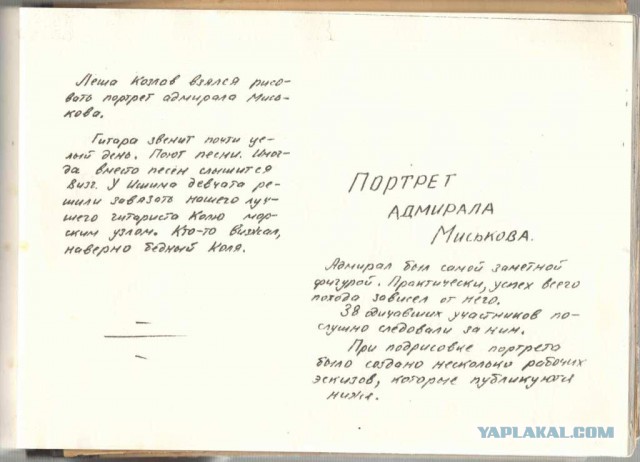 Леша Козлов взялся рисо-
вать портрет адмирала Мись-
кова.
Гитара звенит почти це-
лый день. Поют песни. Иног-
да вместо песен слышится
визг. У Ишима девчата ре-
шили завязать нашего луч-
шего гитариста Колю мор-
ским узлом. Кто-то визжал,
наверно бедный Коля.
ПОРТРЕТ
АДМИРАЛА
МИСЬКОВА.
Адмирал был самой заметной
фигурой. Практически, успех всего
похода зависел от него.
38 одичавших участников по-
слушно следовали за ним.
При подрисовке портрета
было создано несколько рабочих
эскизов, которые публикуются
ниже.
YAPLAKAL.COM